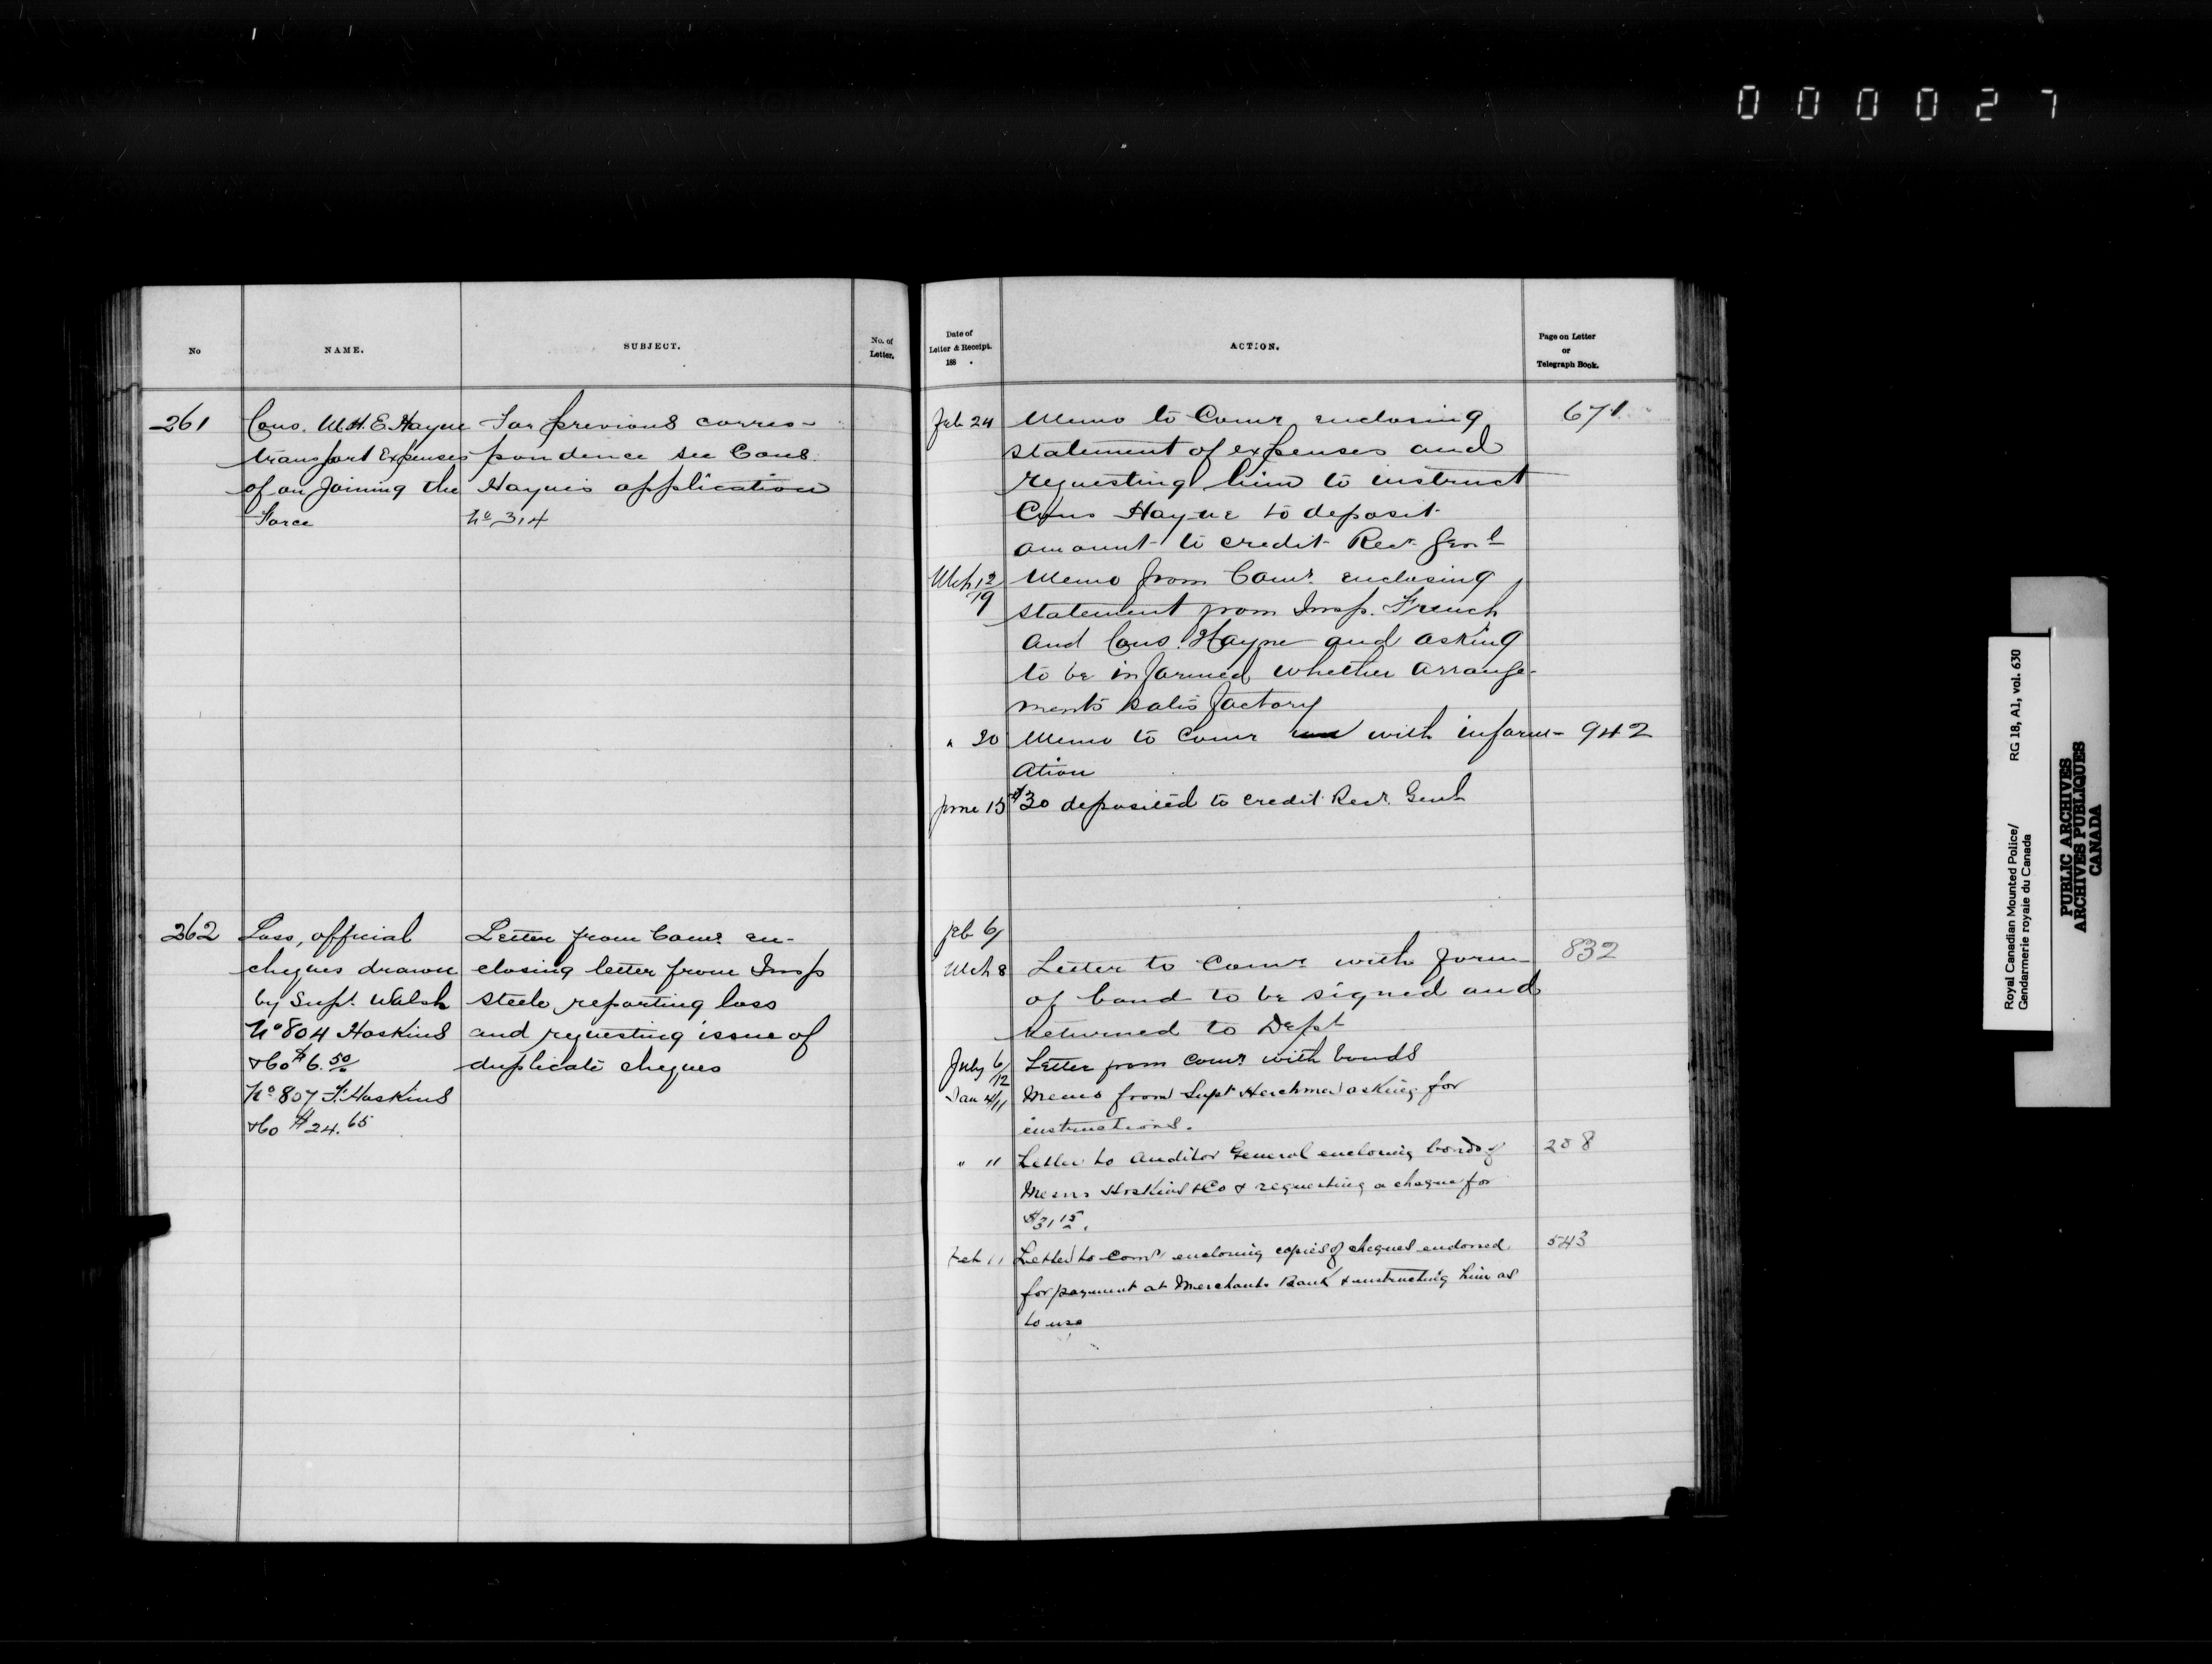 000027
No
NAME.
SUBJECT.
No. of
Letter.
261
Cons. M.H.E. Hayne
transport Expenses
of on Joining the
Force
For previous corres-
pondence see Cons.
Hayne's application
No 314
262
Loss, official
cheques drawn
by Supt. Walsh
No 804 Hoskins
& Co $6.50
No 807 F. Hoskins
& Co $24.65
Letter from Comr. en-
closing letter from Insp
Steele, reporting loss
and requesting issue of
duplicate cheques
Date of
Letter & Receipt.
188 .
ACTION.
Page on Letter
or
Telegraph Book.
Feb 24 Memo to Comr enclosing 671
statement of expenses and
requesting him to instruct
Cons Hayne to deposit
amount to credit Recr. Genl
Mch 12/19 Memo from Comr. enclosing
statement from Insp. French
and Cons. Hayne and asking
to be informed whether arrange-
ments satisfactory
" 20 Memo to Comr with inform- 942
ation
June 15 $30 deposited to credit Recr. Genl
Feb 6/
Mch 8 Letter to Comr with form 832
of bond to be signed and
returned to Dept
July 6/12 Letter from Comr with bonds
Jan 4/11 Memo from Supt Herchmer asking for
instructions.
" 11 Letter to Auditor General enclosing bonds of 258
Messrs Hoskins & Co & requesting a cheque for
$31.15.
Feb 11 Letter to Comr enclosing copies of cheques endorsed 543
for payment at Merchants Bank & instructing him as
to use
Royal Canadian Mounted Police/ RG 18, A1, vol. 630
Gendarmerie royale du Canada
PUBLIC ARCHIVES
ARCHIVES PUBLIQUES
CANADA